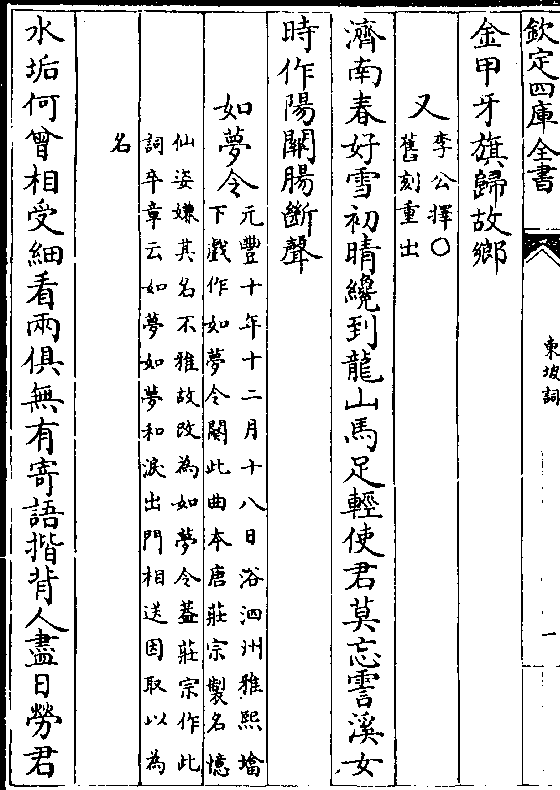 欽定四庫全書
東坡詞
一
金甲牙旗歸故鄉
又李公擇〇
舊刻重出
濟南春好雪初晴纔到龍山馬足輕使君莫忘霅溪女
時作陽關腸斷聲
如夢令元豐十年十二月十八日浴泗州雅熙墖
下戲作如夢令闋此曲本唐莊宗製名憶
仙姿嫌其名不雅故改為如夢令蓋莊宗作此
詞卒章云如夢如夢和淚出門相送因取以為
名
水垢何曾相受細看兩俱無有寄語揩背人盡日勞君